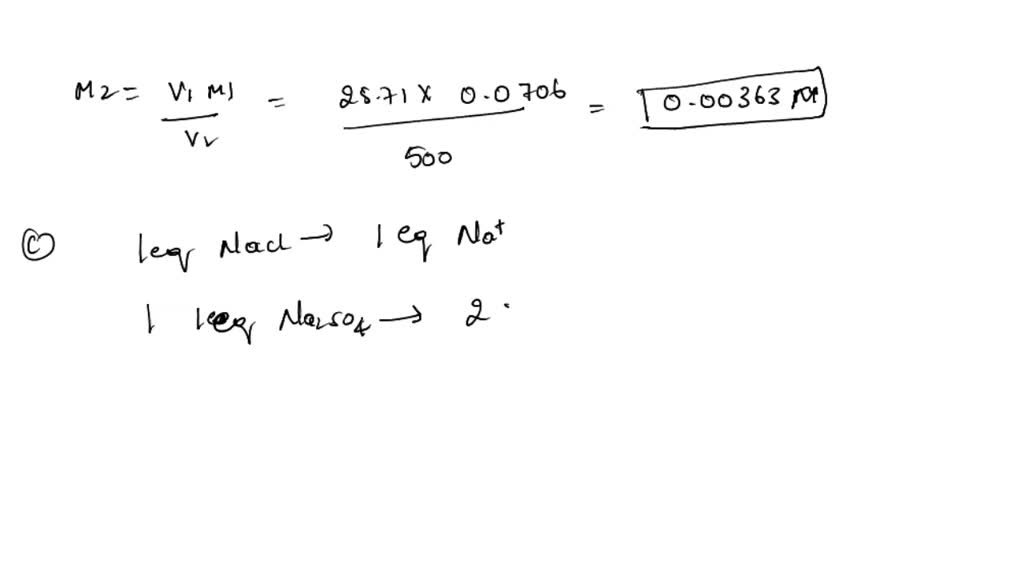 M2 = V1 M1 / V2 = 25.71 x 0.0706 / 500 = 0.00363 M
(C) 1eq Nacl → 1 eq Na+
1 1eq Na2SO4 → 2 .